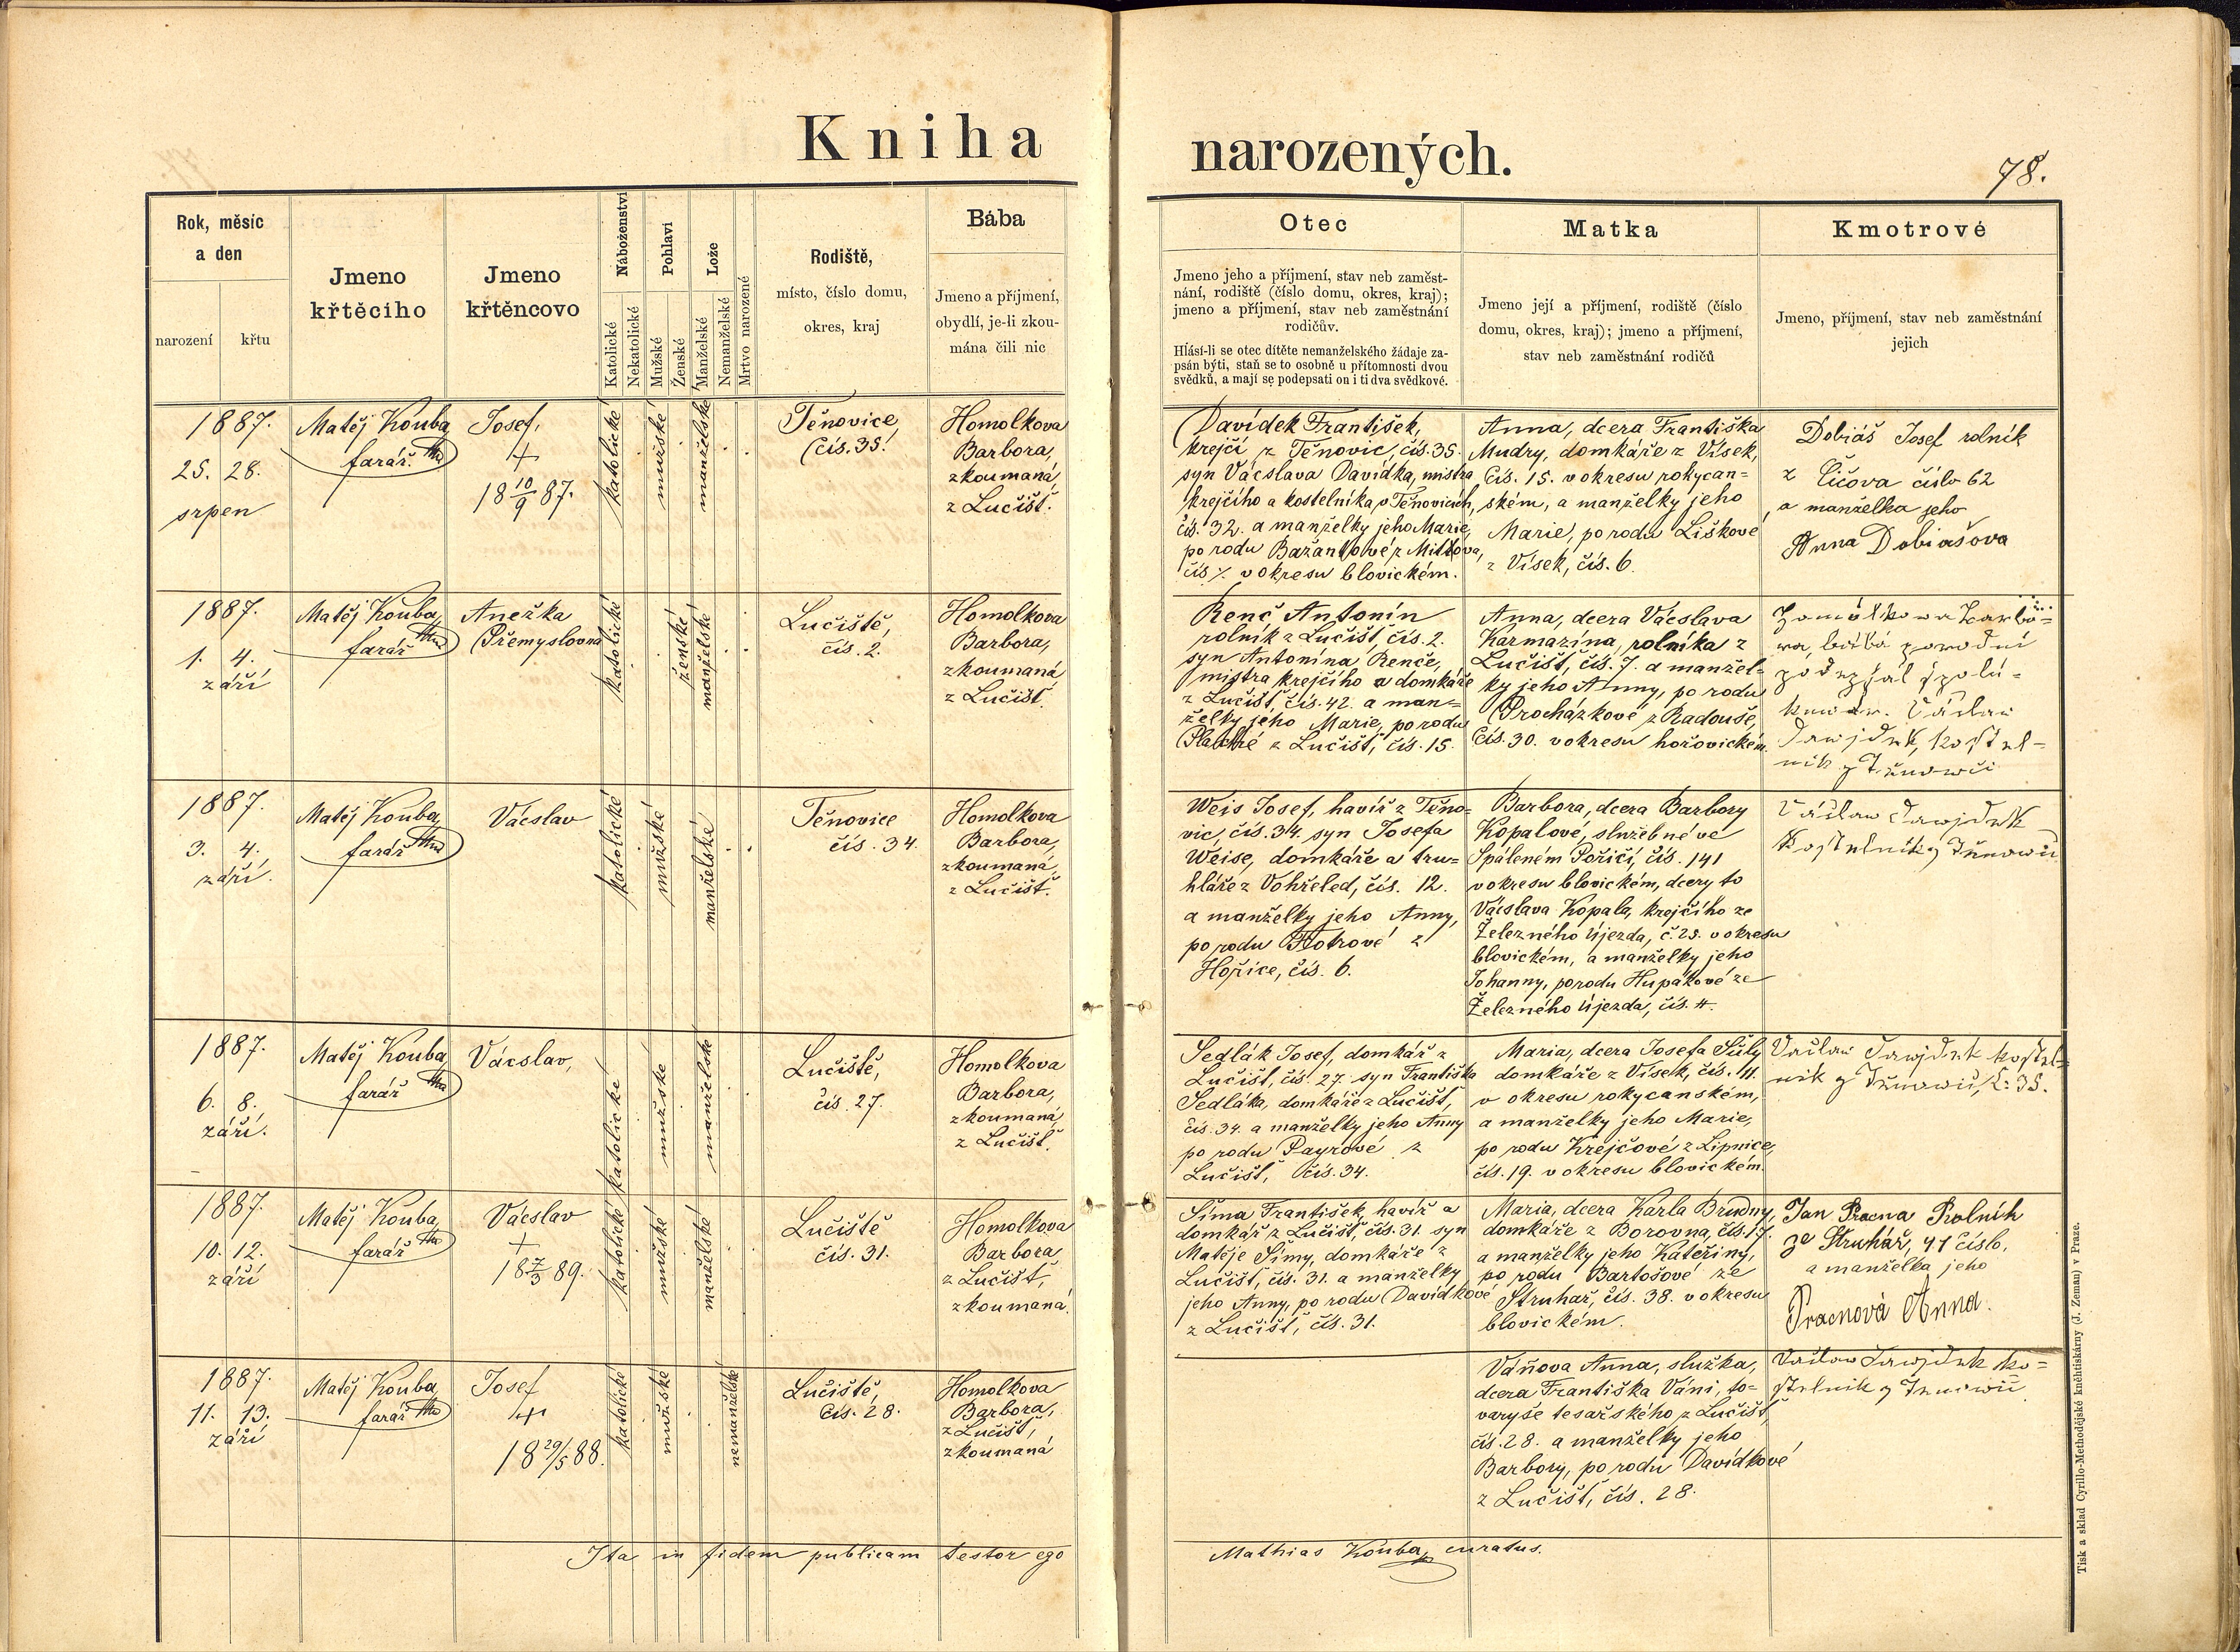 Kniha narozených.
78.
Rok, měsíc
a den
narození
křtu
Jmeno
křtěcího
Jmeno
křtěncovo
Náboženství
Katolické
Nekatolické
Pohlaví
Mužské
Ženské
Lože
Manželské
Nemanželské
Mrtvo narozené
Rodiště,
místo, číslo domu,
okres, kraj
Bába
Jmeno a příjmení,
obydlí, je-li zkou-
mána čili nic
Otec
Jmeno jeho a příjmení, stav neb zaměst-
nání, rodiště (číslo domu, okres, kraj);
jmeno a příjmení, stav neb zaměstnání
rodičův.
Hlásí-li se otec dítěte nemanželského žádaje za-
psán býti, staň se to osobně u přítomnosti dvou
svědků, a mají se podepsati on i ti dva svědkové.
Matka
Jmeno její a příjmení, rodiště (číslo
domu, okres, kraj); jmeno a příjmení,
stav neb zaměstnání rodičů
Kmotrové
Jmeno, příjmení, stav neb zaměstnání
jejich
1887.
25. 28.
srpen
Matěj Kouba
farář
Josef,
+
18 10/9 87.
katolické
mužské
manželské
Těnovice,
čís. 35.
Homolkova
Barbora,
zkoumaná,
z Lučišť.
Davídek František,
krejčí z Těnovic, čís. 35.
syn Vácslava Davídka, mistra
krejčího a kostelníka v Těnovicích,
čís. 32. a manželky jeho Marie,
po rodu Bažantové z Mítova,
čís. 7. v okresu blovickém.
Anna, dcera Františka
Mudry, domkáře z Vísek,
čís. 15. v okresu rokycan-
ském, a manželky jeho
Marie, po rodu Liškové
z Vísek, čís. 6.
Dobiáš Josef rolník
z Číčova číslo 62
a manželka jeho
Anna Dobiašova
1887.
1. 4.
září
Matěj Kouba,
farář
Anežka
Přemyslovna
katolické
ženské
manželské
Lučiště,
čís. 2.
Homolkova
Barbora,
zkoumaná
z Lučišť.
Renč Antonín
rolník z Lučišť, čís. 2.
syn Antonína Renče,
mistra krejčího a domkáře
z Lučišť, čís. 42. a man-
želky jeho Marie, po rodu
z Lučišť, čís. 15.
Anna, dcera Vácslava
Karmazína, rolníka z
Lučišť, čís. 7. a manžel-
ky jeho Anny, po rodu
Procházkové z Radouše,
čís. 30. v okresu hořovickém.
1887.
3. 4.
září.
Matěj Kouba,
farář
Vácslav
katolické
mužské
manželské
Těnovice
čís. 34.
Homolkova
Barbora,
zkoumaná,
z Lučišť.
Weis Josef, havíř z Těno-
vic, čís. 34. syn Josefa
Weise, domkáře a tru-
hláře z Vohřeled, čís. 12.
a manželky jeho Anny,
po rodu Flotrové z
Hořice, čís. 6.
Barbora, dcera Barbory
Kopalové, služebné ve
Spáleném Poříčí, čís. 141
v okresu blovickém, dcery to
Vácslava Kopala, krejčího ze
Železného Újezda, č. 25. v okresu
blovickém, a manželky jeho
Johanny, po rodu Hupákové ze
Železného Újezda, čís. 4.
1887.
6. 8.
září.
Matěj Kouba
farář
Vácslav,
katolické
mužské
manželské
Lučiště,
čís. 27.
Homolkova
Barbora,
zkoumaná,
z Lučišť.
Sedlák Josef, domkář z
Lučišť, čís. 27. syn Františka
Sedláka, domkáře z Lučišť,
čís. 34. a manželky jeho Anny
po rodu Payrové z
Lučišť, čís. 34.
Maria, dcera Josefa Šůly
domkáře z Vísek, čís. 11.
v okresu rokycanském,
a manželky jeho Marie,
po rodu Krejčové z Lipnice,
čís. 19. v okresu blovickém.
1887.
10. 12.
září
Matěj Kouba,
farář
Vácslav
+
18 7/3 89.
katolické
mužské
manželské
Lučiště
čís. 31.
Homolkova
Barbora
z Lučišť,
zkoumaná.
Šíma František, havíř a
domkář z Lučišť, čís. 31. syn
Matěje Šímy, domkáře z
Lučišť, čís. 31. a manželky
jeho Anny, po rodu Davídkové
z Lučišť, čís. 31.
Maria, dcera Karla Brudny,
domkáře z Borovna, čís. 17.
a manželky jeho Kateřiny,
po rodu Bartošové ze
Struhař, čís. 38. v okresu
blovickém.
Jan Pracna Rolník
ze Struhář, 41 číslo,
a manželka jeho
Pracnová Anna.
1887.
11. 13.
září
Matěj Kouba,
farář
Josef
+
18 29/5 88.
katolické
mužské
nemanželské
Lučiště,
čís. 28.
Homolkova
Barbora,
z Lučišť,
zkoumaná
Váňova Anna, služka,
dcera Františka Váni, to-
varyše tesařského z Lučišť,
čís. 28. a manželky jeho
Barbory, po rodu Davídkové
z Lučišť, čís. 28.
Ita in fidem publicam testor ego
Mathias Kouba, curatus.
Tisk a sklad Cyrillo-Methodějské knihtiskárny (J. Zeman) v Praze.